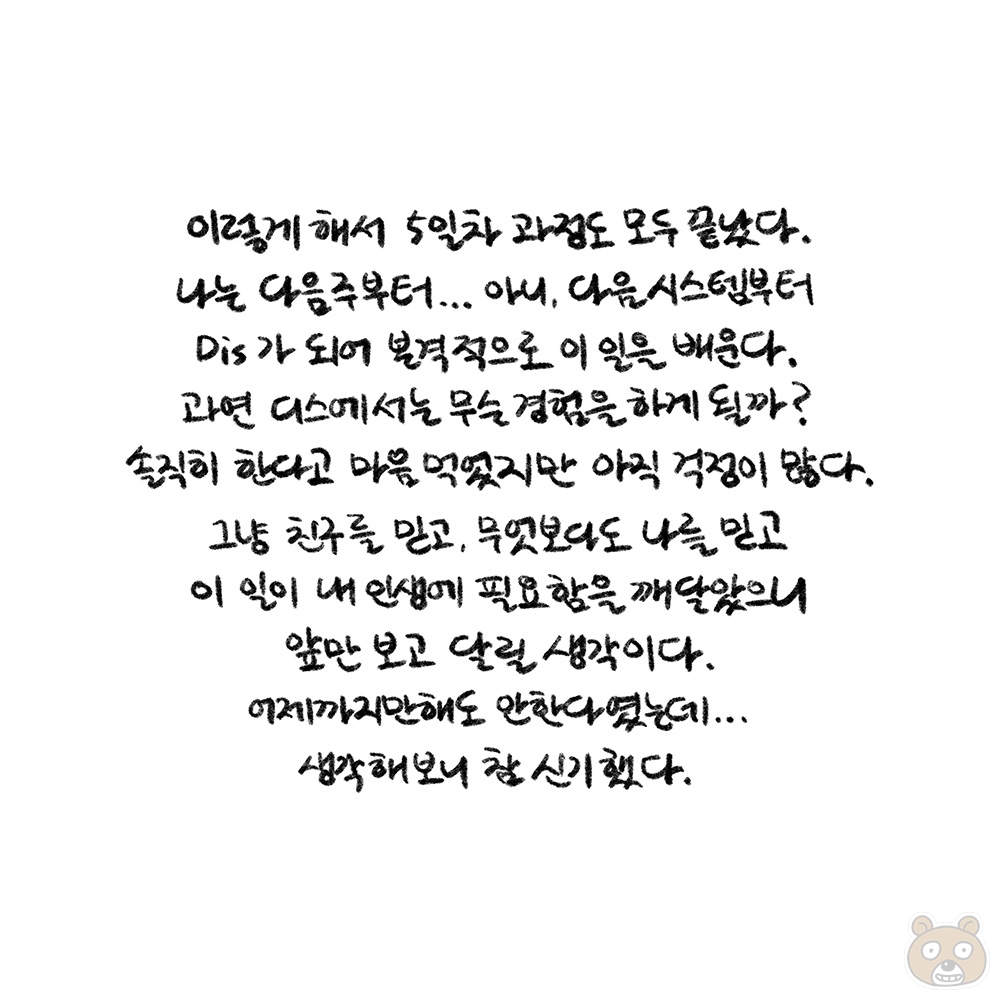 이렇게 해서 5일차 과정도 모두 끝났다.
나는 다음주부터... 아니, 다음시스템부터
Dis가 되어 본격적으로 이 일을 배운다.
과연 디스에서는 무슨 경험을 하게 될까?
솔직히 한다고 마음먹었지만 아직 걱정이 많다.
그냥 친구를 믿고, 무엇보다도 나를 믿고
이 일이 내 인생에 필요함을 깨달았으니
앞만 보고 달릴 생각이다.
어제까지만해도 안한다였는데...
생각해보니 참 신기했다.